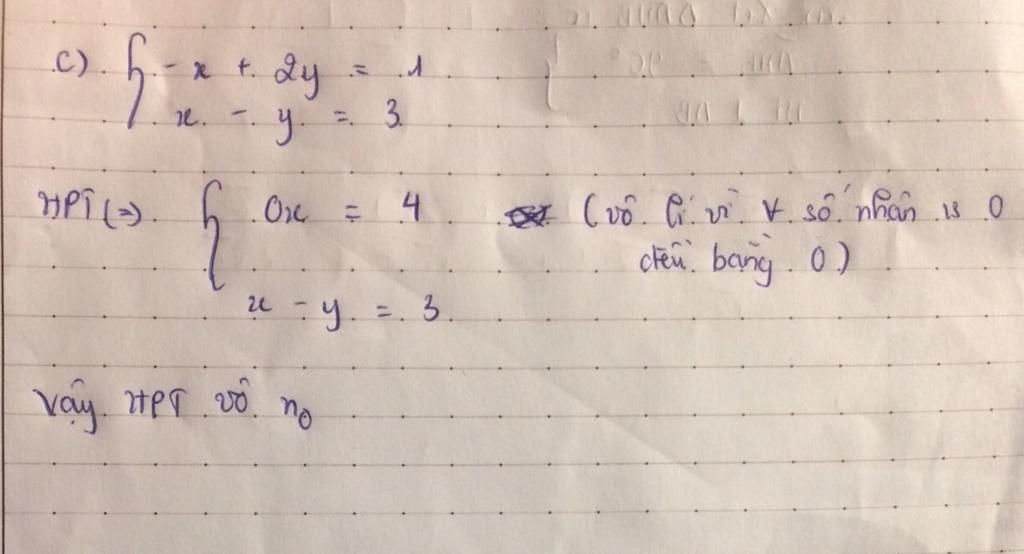 c) { - x + 2y = 1
x - y = 3
HPT (=) { 0x = 4 (vô lí vì ∀ số nhân vs 0
đều bằng 0)
x - y = 3
Vậy HPT vô n0